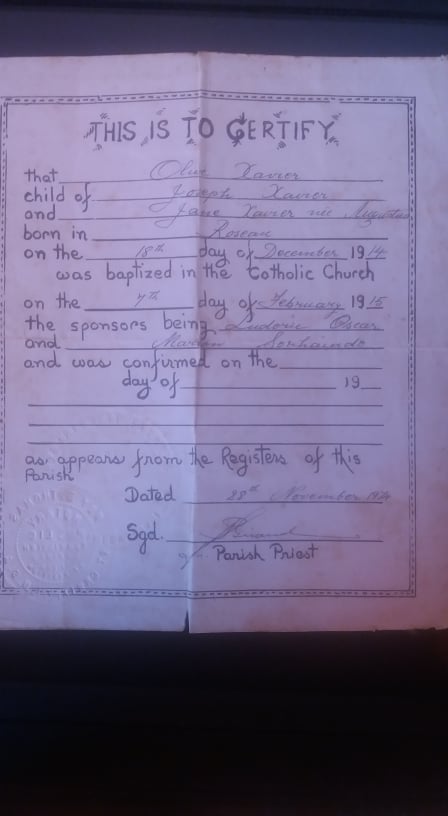 THIS IS TO CERTIFY
that Olive Xavier
child of Joseph Xavier
and Jane Xavier née
born in Roseau
on the 18th day of December 1914
was baptized in the Catholic Church
on the 7th day of February 1915
the sponsors being Ludovic Oscar
and
and was confirmed on the
day of 19
as appears from the Registers of this
Parish
Dated 28th November 19
Sgd.
Parish Priest